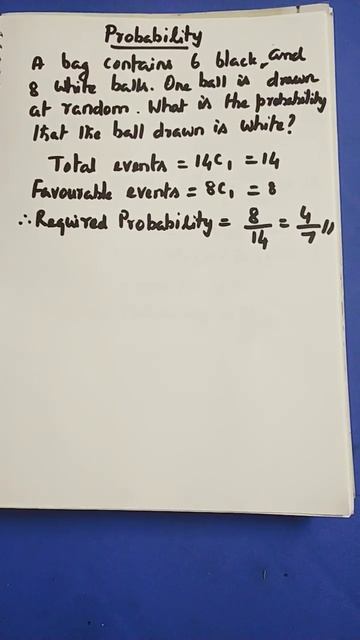 Probability
A bag contains 6 black, and
8 white balls. One ball is drawn
at random. What is the probability
that the ball drawn is white?
Total events = 14C₁ = 14
Favourable events = 8C₁ = 8
∴ Required Probability = 8/14 = 4/7 //